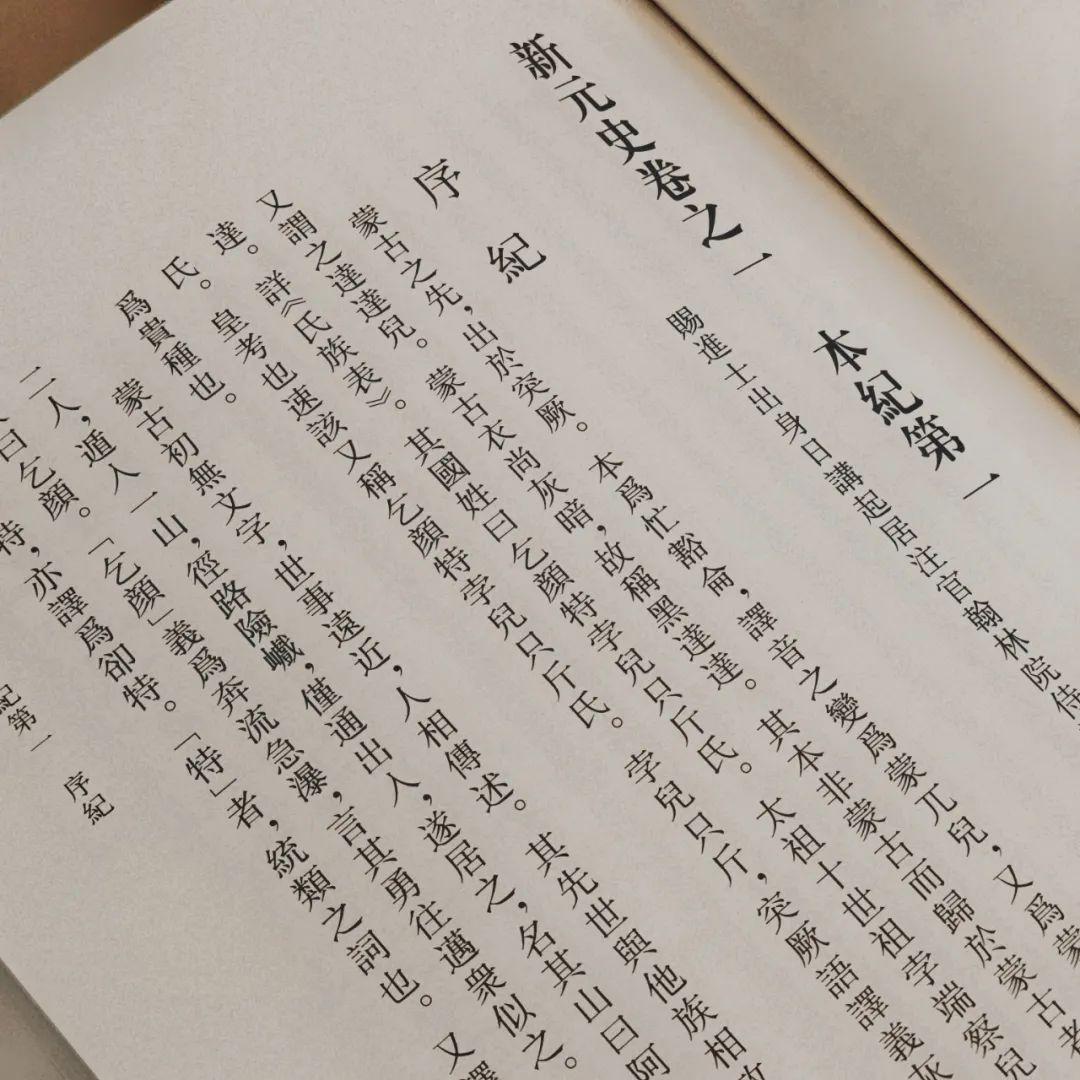 新元史卷之一　本紀第一
賜進士出身日講起居注官翰林院侍
序紀
蒙古之先，出於突厥。本爲忙豁侖，譯音之變爲蒙兀兒，又爲蒙
又謂之達達兒。蒙古衣尚灰暗，故稱黑達達。其本非蒙古而歸於蒙古者
達。詳《氏族表》。其國姓曰乞顏特孛兒只斤氏。太祖十世祖孛端察兒
氏。皇考也速該又稱乞顏特孛兒只斤氏。孛兒只斤，突厥語譯義灰
爲貴種也。
蒙古初無文字，世事遠近，人相傳述。其先世與他族相攻
二人，遁入一山，徑路險巇，僅通出入，遂居之，名其山曰阿
曰乞顏。「乞顏」義爲奔流急瀑，言其勇往邁衆似之。
特，亦譯爲卻特。「特」者，統類之詞也。又譯
紀第一　序紀